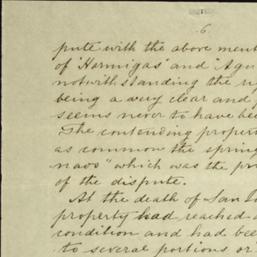 6
pute with the above ment
of "Hormigas" and "Agu
notwithstanding the ri
being a very clear and
seems never to have bee
The contending propert
as common the spring
naos" which was the pr
of the dispute.
At the death of San
property had reached
condition and had bee
to several portions or